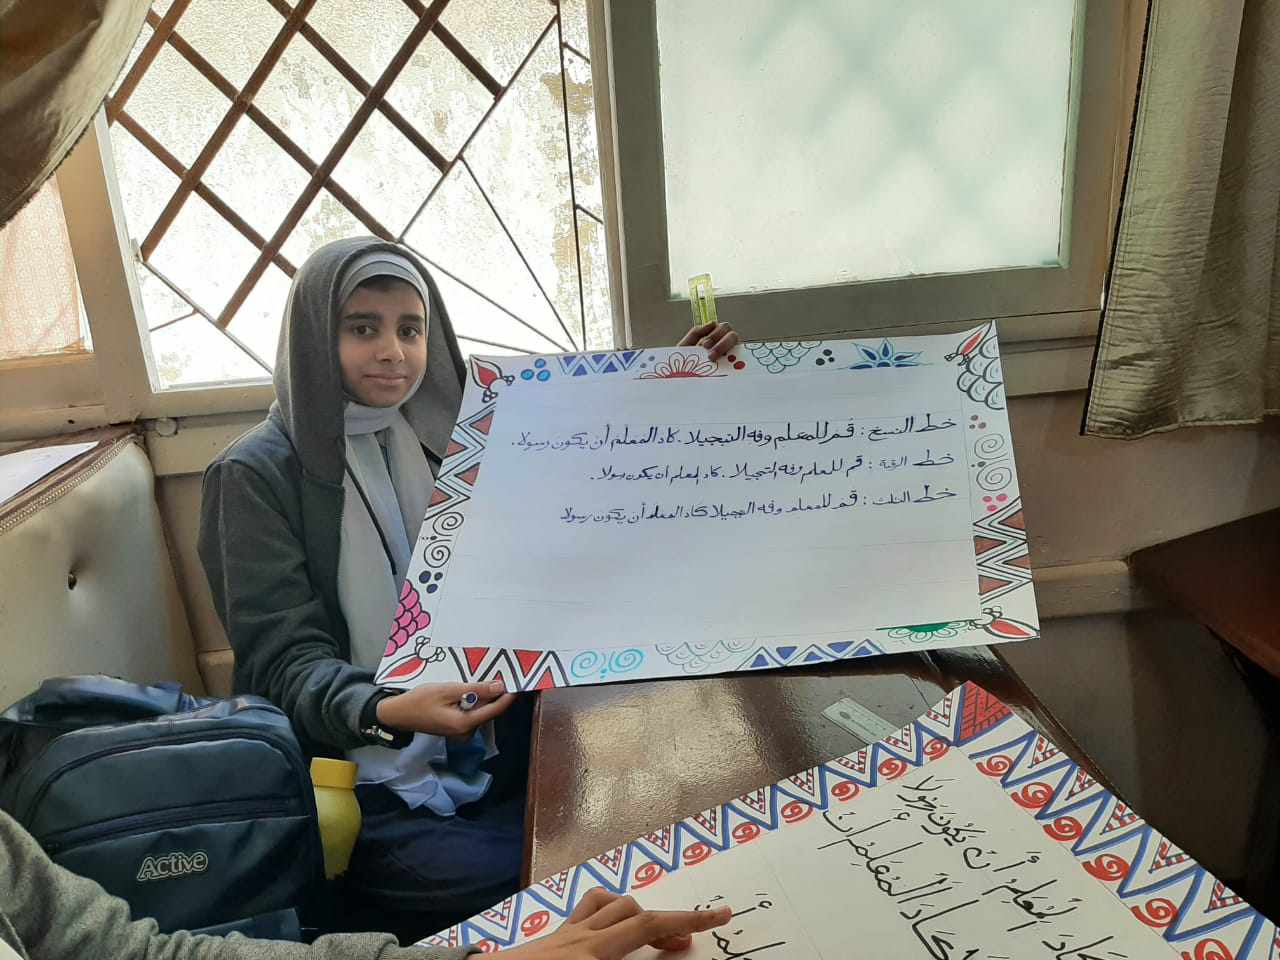 خط النسخ : قم للمعلم وفه التبجيلا . كاد المعلم أن يكون رسولا .
خط الرقعة : قم للمعلم وفه التبجيلا . كاد المعلم ان يكون رسولا .
خط الثلث : قم للمعلم وفه التبجيلا كاد المعلم أن يكون رسولا
Active
كاد المُعَلِمُ أَنْ يَكُونَ رَسُولاَ
كَادَ المُعَلِمُ أَن